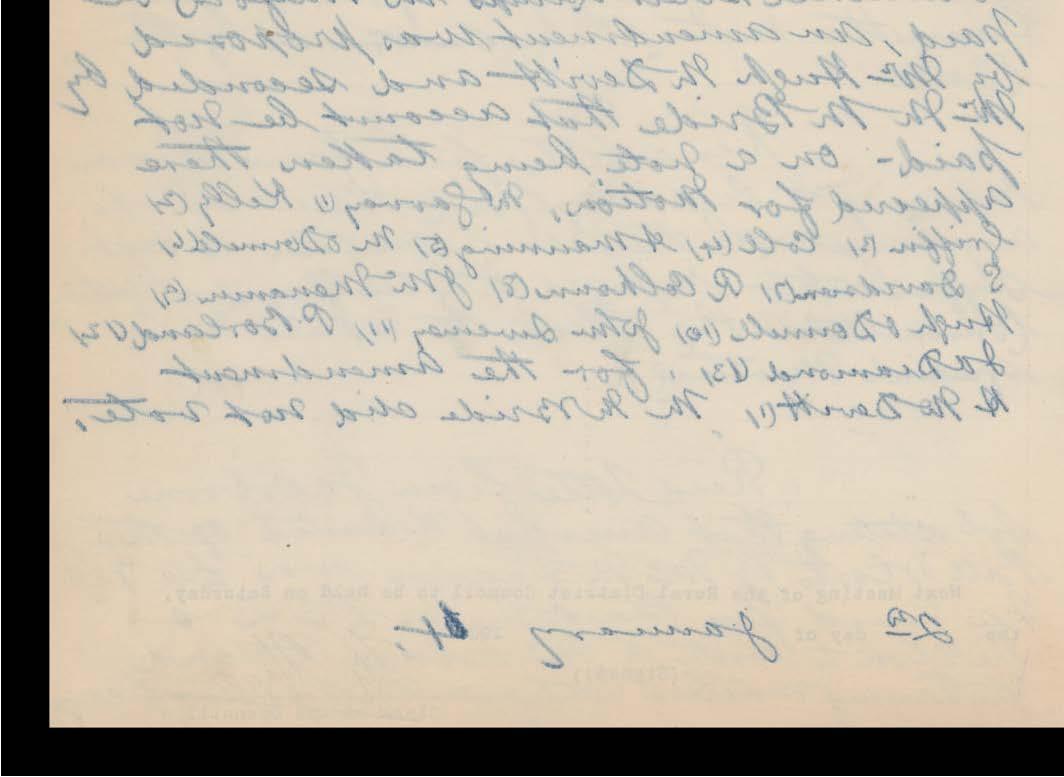 paid, an amendment was proposed
by Mr Hugh McDevitt and seconded by
Mr M McBride that account be not
paid - on a vote being taken there
appeared for Motion, McGarvey (1) Kelly (2)
Griffin (3) Cole (4) A Manning (5) N O Donnell (6)
S Davidson (7) R Colhoun (8) J McMenamin (9)
Hugh O Donnell (10) John Sweeney (11) P Borland (12)
Diamond (13) for the amendment
H McDevitt (1) M McBride did not vote.
Next Meeting of the Rural District Council to be held on Saturday,
the 2nd day of January 4.
(Signed)